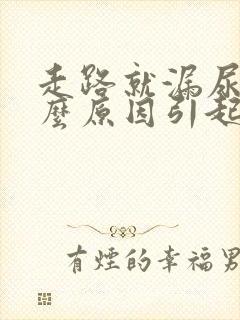 走路就漏尿
麼原因引起
有煙的幸福男